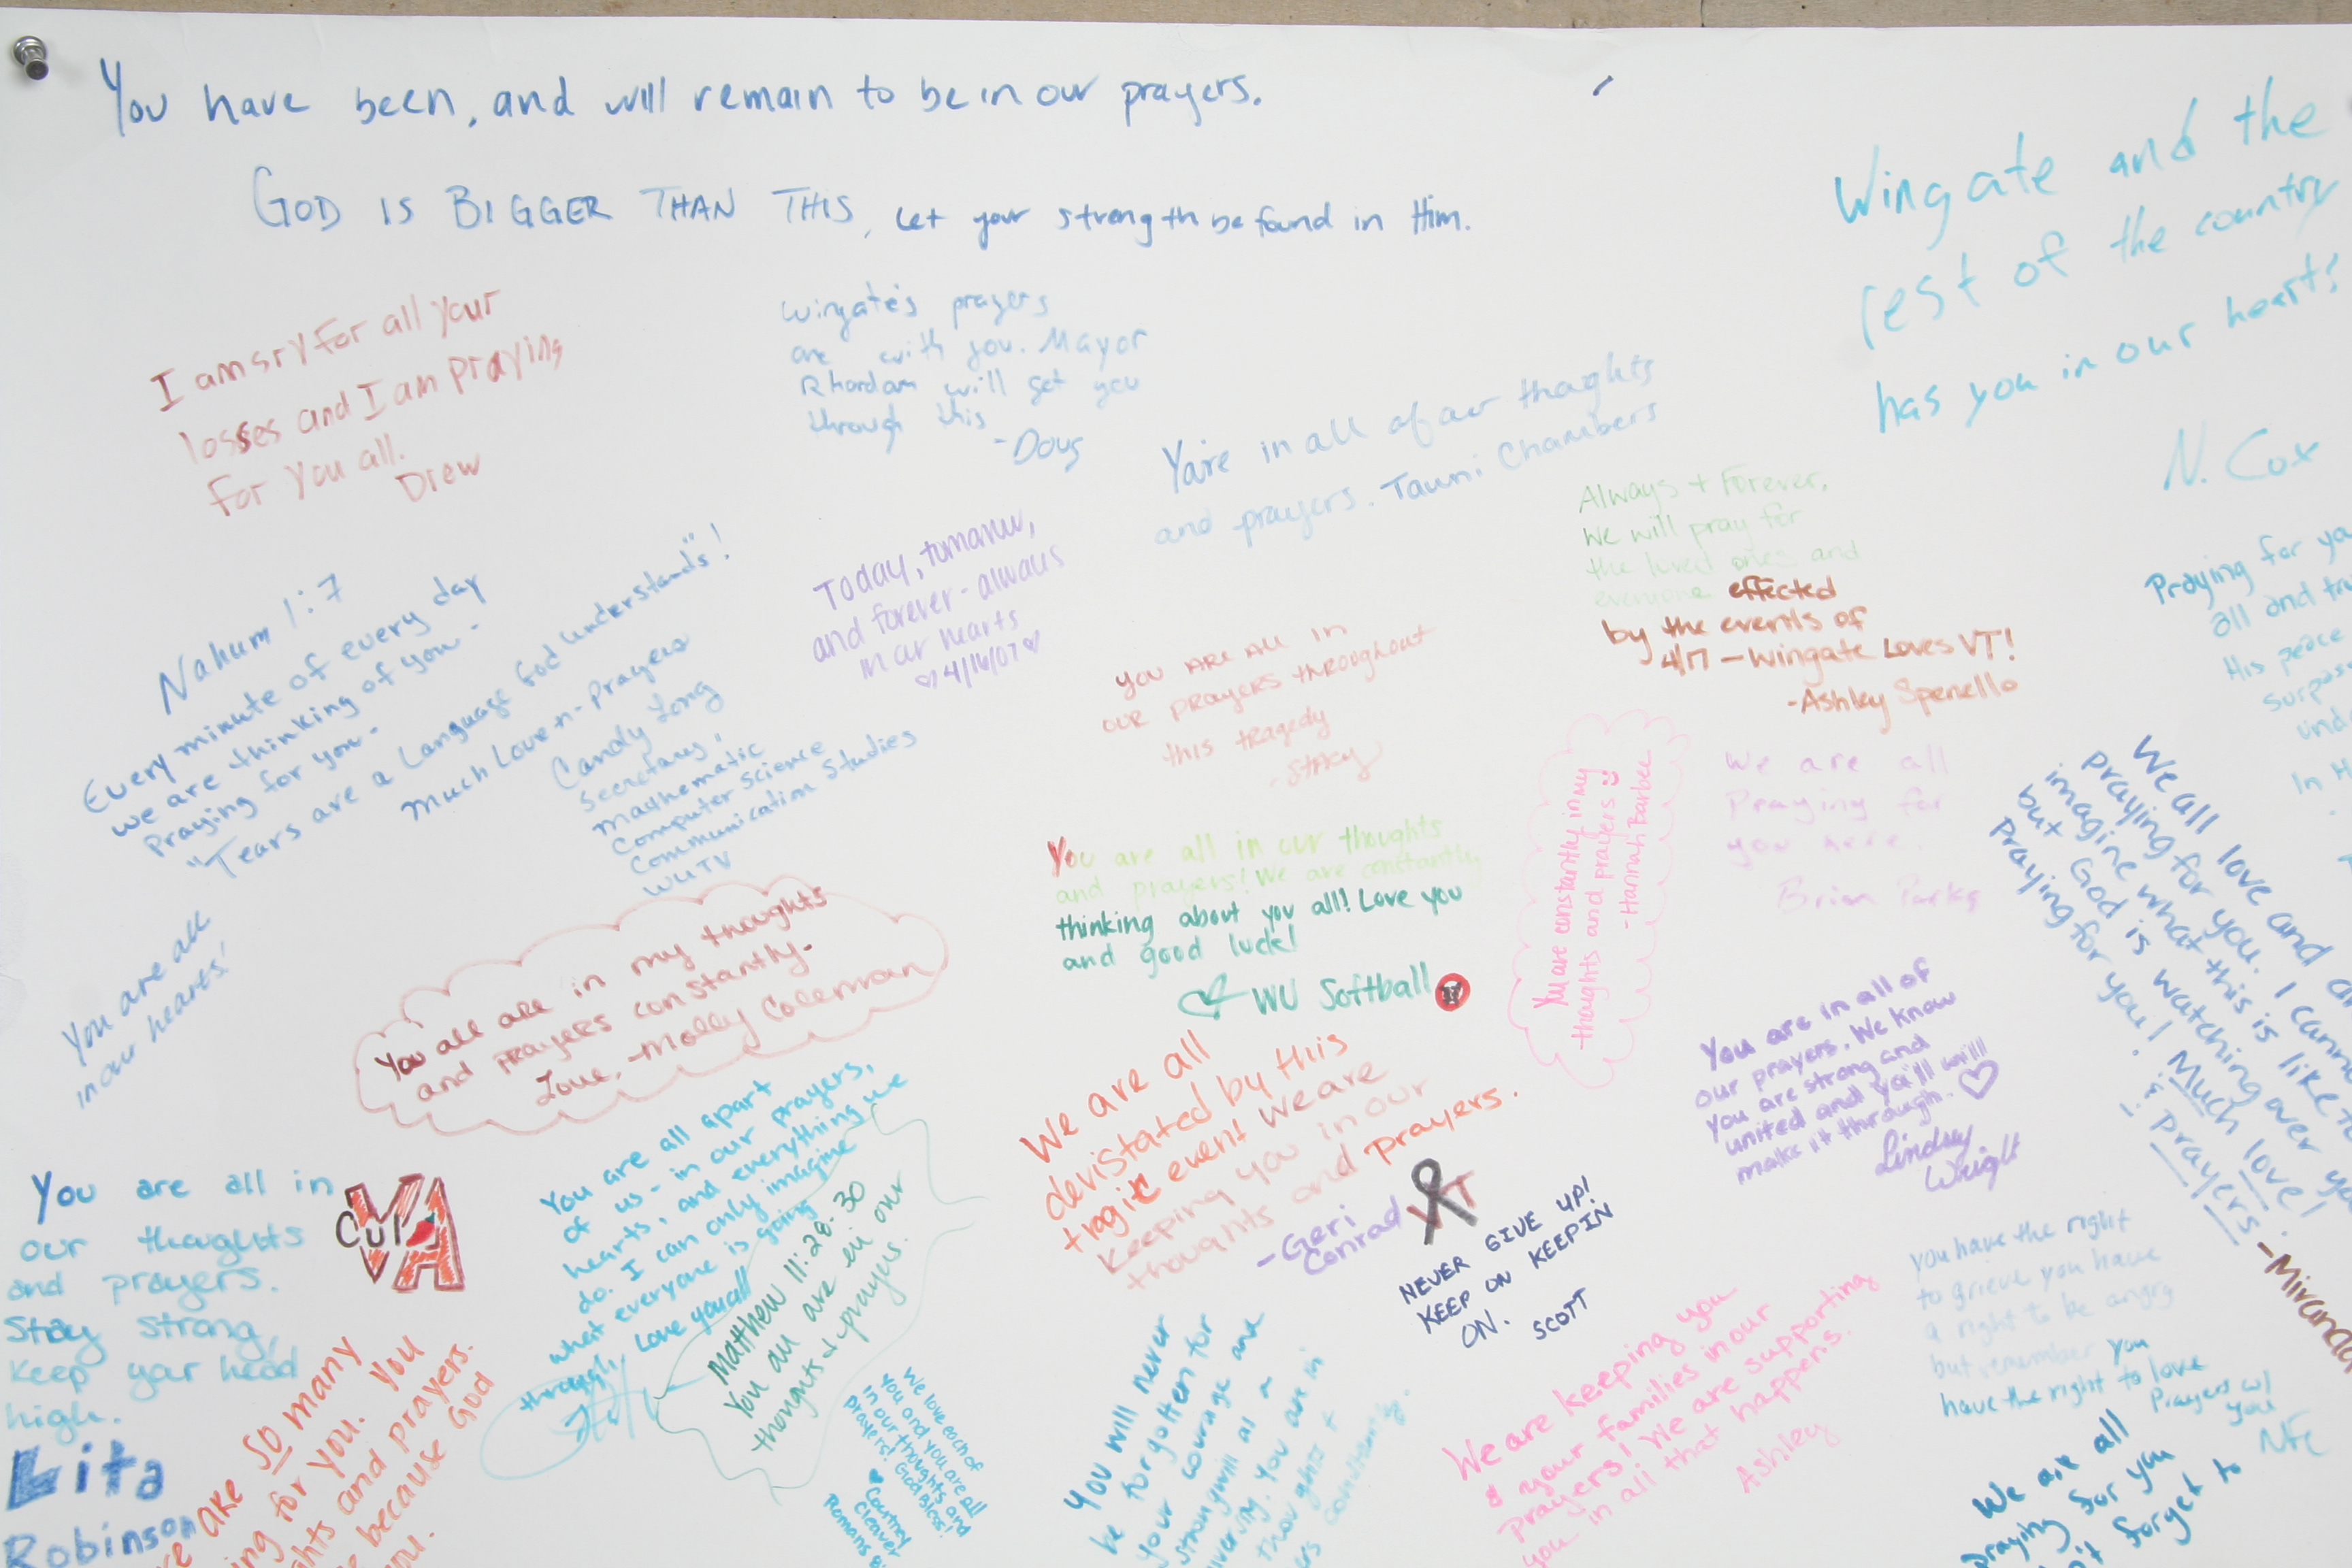 You have been, and will remain to be in our prayers.
GOD IS BIGGER THAN THIS, Let your strength be found in Him.
Wingate and the
rest of the country
has you in our hearts
N. Cox
I am sry for all your
losses and I am praying
for you all.
Drew
Wingate's prayers
are with you. Mayor
Rhordam will get you
through this
-Doug
You're in all of our thoughts
and prayers. Tawni Chambers
Always + Forever,
We will pray for
the loved ones and
everyone effected
by the events of
4/17 - Wingate Loves VT!
-Ashley Spenello
Nahum 1:7
Every minute of every day
we are thinking of you -
Praying for you -
"Tears are a Language God understands"!
Much Love-n-Prayers
Candy Long
Secretary,
Mathematic
Computer Science
Communication Studies
WUTV
Today, tomorrow,
and forever - always
in our hearts
♡4/16/07♡
You are all in
our prayers throughout
this tragedy
- Stacy
Praying for you
all and
His peace
In
You are all in our thoughts
and prayers! We are constantly
thinking about you all! Love you
and good luck!
♡ WU Softball
You are constantly in my
thoughts and prayers
- Hannah Barbee
We are all
Praying for
you here.
Brian Parks
We all love and
praying for you. I cannot
imagine what this is like
but God is watching over you
Praying for you! Much love!
& prayers.
-Miranda
You are all
in our hearts!
You all are in my thoughts
and prayers constantly.
Love, -Molly Coleman
You are in all of
our prayers. We know
you are strong and
united and ya'll will
make it through. ♡
Lindsey
Wright
We are all
devistated by this
tragic event We are
Keeping you in our
thoughts and prayers.
-Geri
Conrad
VT
You are all in
our thoughts
and prayers.
Stay strong,
keep your head
high.
Lita
Robinson
VA
Cul
You are all apart
of us - in our prayers,
hearts, and everything we
do. I can only imagine
what everyone is going
through, Love you all
Matthew 11:28-30
You all are in our
thoughts & prayers.
NEVER GIVE UP!
KEEP ON KEEPIN
ON.
SCOTT
you have the right
to grieve you have
a right to be angry
but remember you
have the right to love
Prayers w/
you
We are keeping you
& your families in our
prayers! We are supporting
you in all that happens.
Ashley
We love each of
you and you are all
in our thoughts and
prayers! God Bless!
♥ Courtney
Cleaver
Romans 8
You will never
be forgotten for
your courage and
strong will as a
You are in
thoughts +
constantly.
are so many
for you. You
and prayers.
because God
you.
We are all
praying for you
forget to